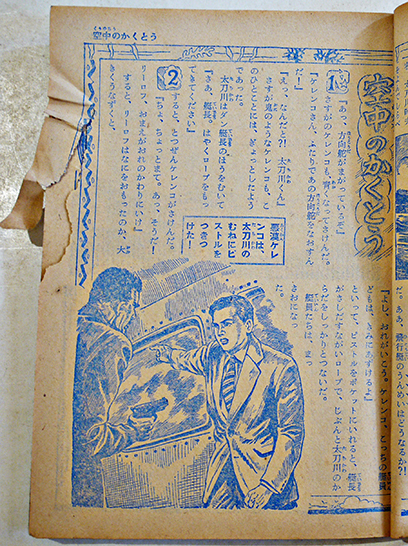 空中のかくとう
だ。ああ、飛行艇のうんめいはどうなるか？！
空中のかくとう
1
『あっ、方向舵がまがっているぞ』
さすがのケレンコも、青くなってさけんだ。
『ケレンコさん、ふたりであの方向舵をなおすん
だ！』
『えっ、なんだと？！　太刀川くん』
さすが鬼のようなケレンコも、こ
のひとことには、ぎょっとしたよう
であった。
太刀川はダン艇長のほうをむいて
『さあ、艇長。はやくロープをもっ
てきてください』
2
すると、とつぜんケレンコがさけんだ。
『ちょ、ちょっとまて。あっ、そうだ！
リーロフ、おまえがおれのかわりにいけ』
すると、リーロフはなにをおもったのか、大
きくうなずくと、
『よし、おれがいこう。ケレンコ、こっちの艇員
どもは、きみにあずけるよ』
といって、ピストルをポケットにいれると、艇長
がさしだすながいロープで、じぶんと太刀川のか
らだをしっかりとつないだ。
艇員たちは、まっ
さおになっ
た。
悪漢ケレ
ンコは、
太刀川の
むねにピ
ストルを
つきつ
けた！